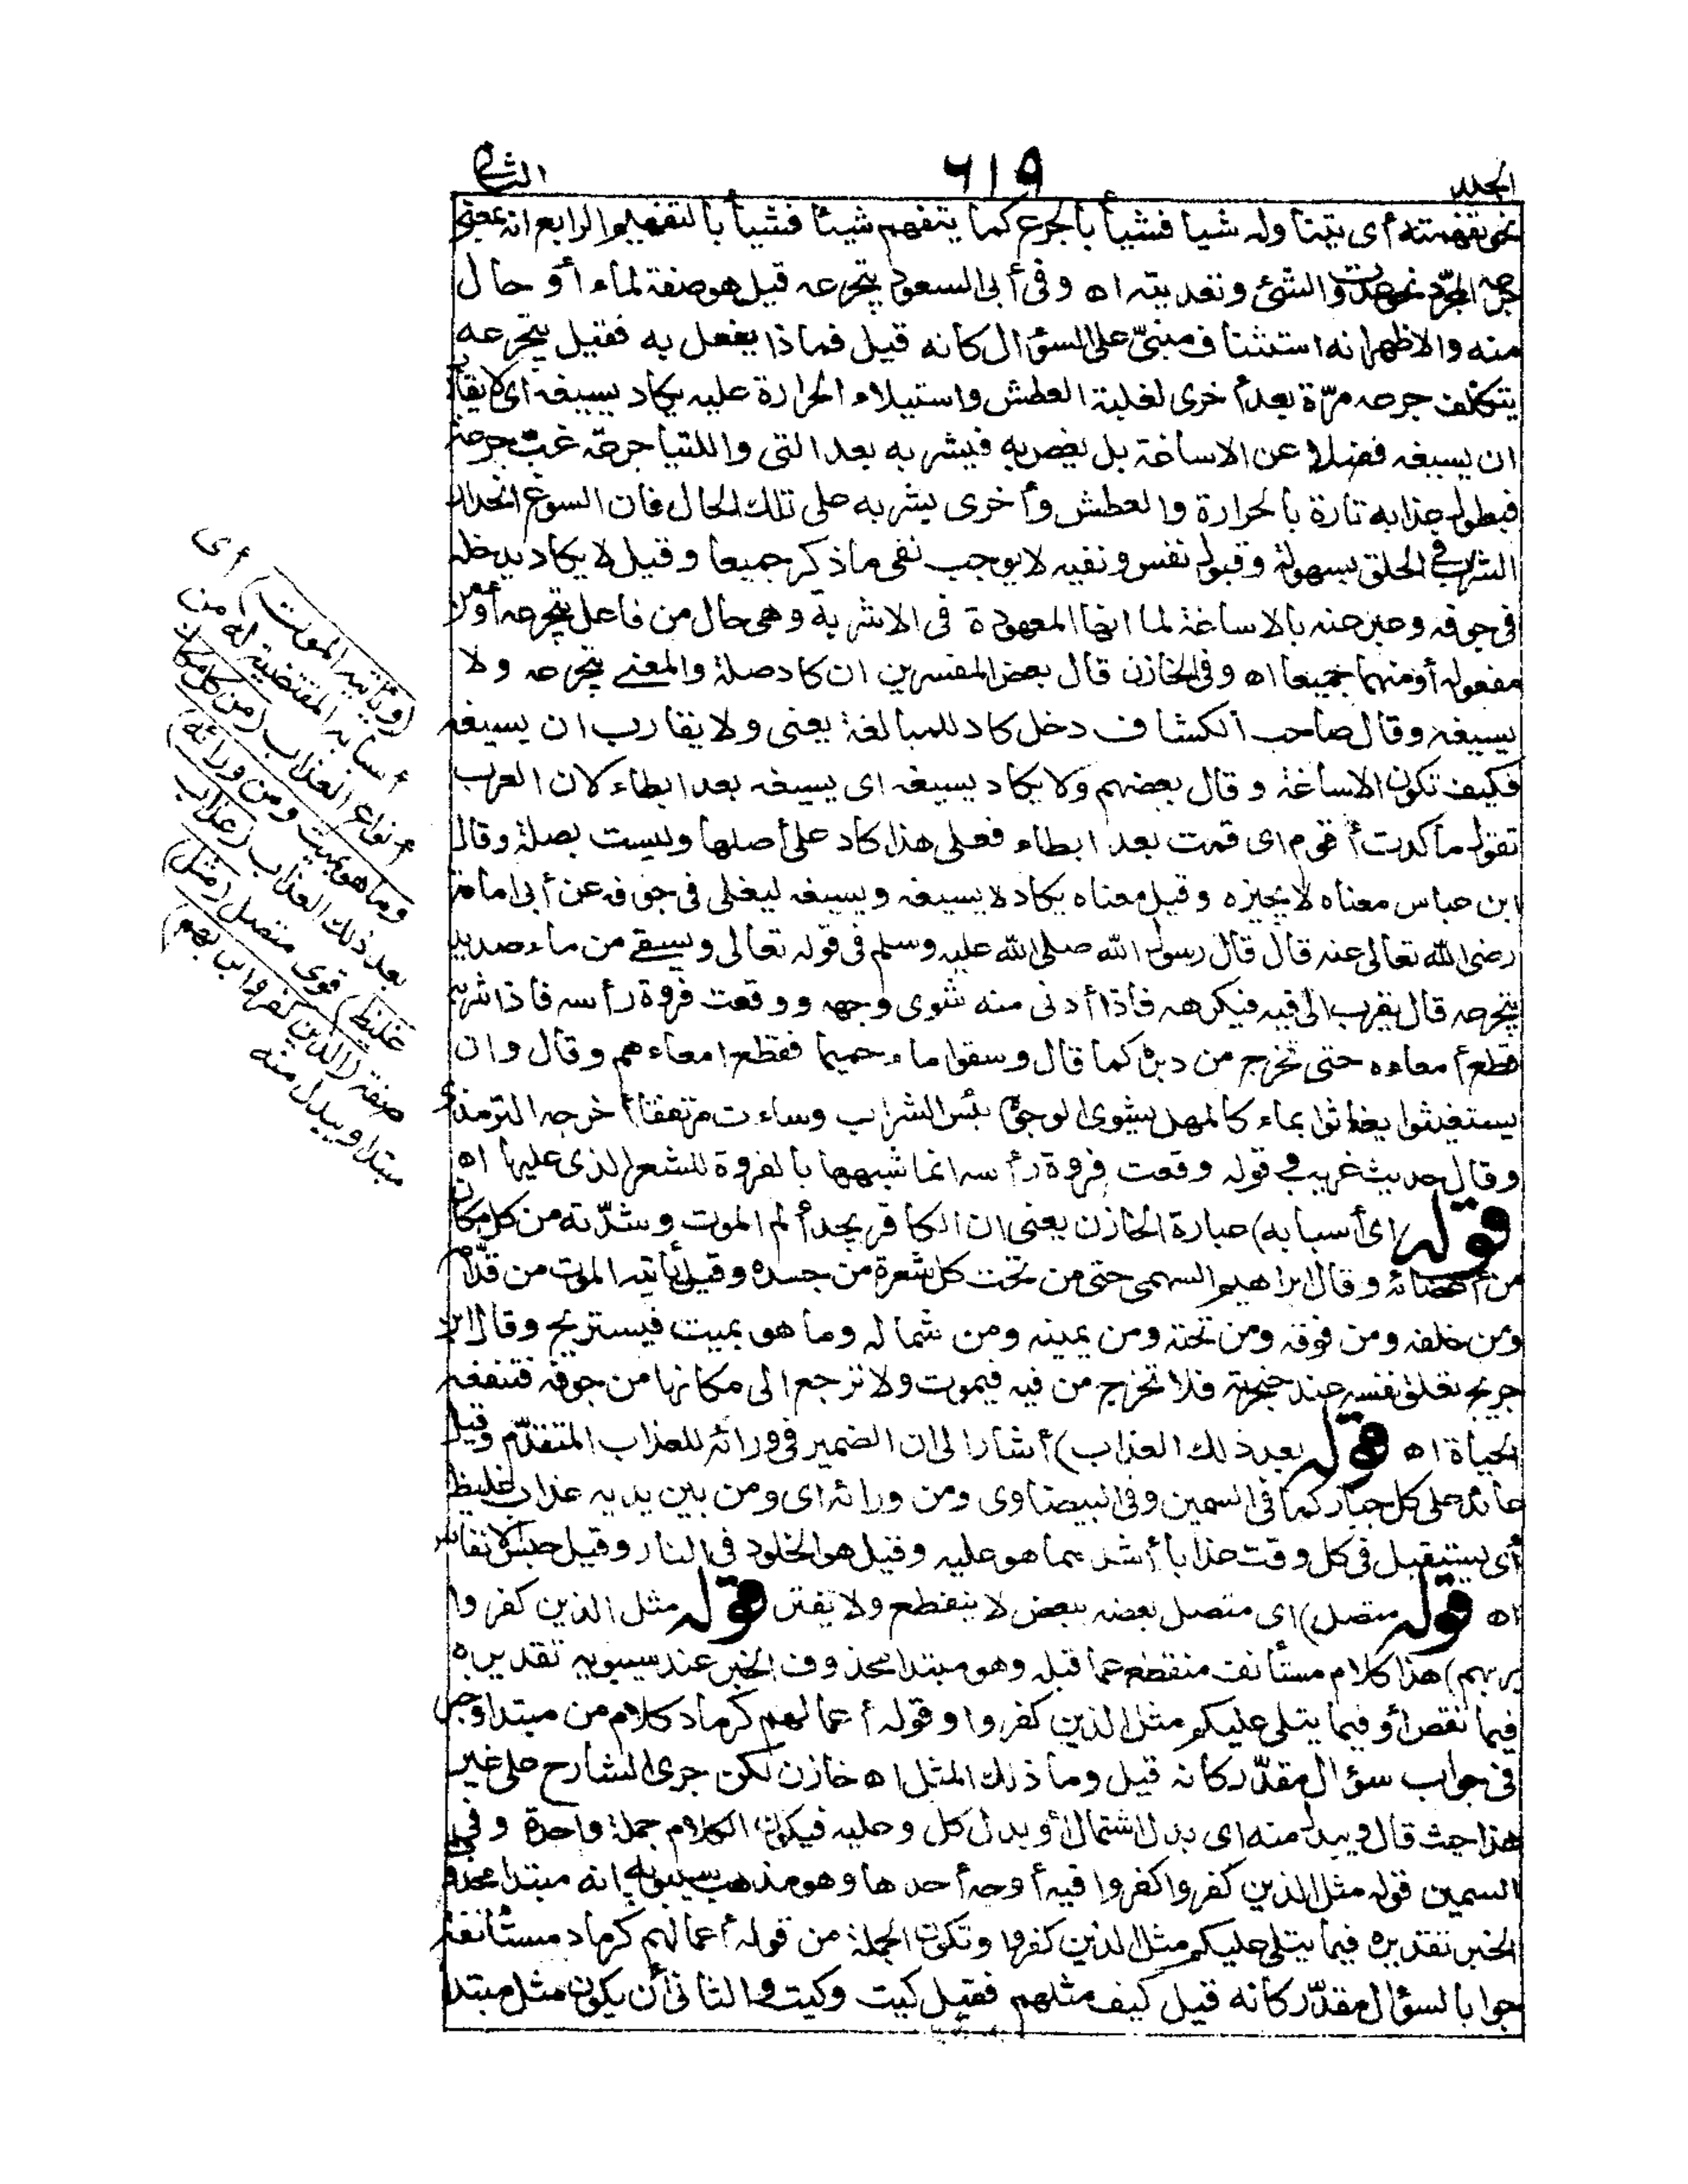 الجلد ٦١٩ الثانى
نحو تفهمته أى يتناوله شيا فشيأ بالجرع كما يتفهم شيئا فشيأ بالتفهيم الرابع انه بمعنى
جرعه المجرد نحو عدوت الشئ وتعديته اه وفى أبى السعود يتجرعه قيل هو صفة لماء أو حال
منه والاظهر انه استئناف مبنىّ على السؤال كانه قيل فماذا يفعل به فقيل يتجرعه
يتكلف جرعه مرّة بعد أخرى لغلبة العطش واستيلاء الحرارة عليه يكاد يسيغه اى لا يقارب
ان يسيغه فضلا عن الاساغة بل يغص به فيشربه بعد اللتى واللتيا جرعة غبّ جرعة
فيطول عذابه تارة بالحرارة والعطش وأخرى بشربه على تلك الحال فان السوغ انحدار
الشراب فى الحلق بسهولة وقبول نفس ونفيه لا يوجب نفى ما ذكر جميعا وقيل لا يكاد يدخله
فى جوفه وعبر عنه بالاساغة لما انها المعهودة فى الاشربة وهى حال من فاعل يتجرعه أو من
مفعوله أو منهما جميعا اه وفى الخازن قال بعض المفسرين ان كاد صلة والمعنى يتجرعه ولا
يسيغه وقال صاحب الكشاف دخل كاد للمبالغة يعنى ولا يقارب ان يسيغه
فكيف تكون الاساغة وقال بعضهم ولا يكاد يسيغه اى يسيغه بعد ابطاء لان العرب
تقول ما كدت أقوم اى قمت بعد ابطاء فعلى هذا كاد على أصلها وليست بصلة وقال
ابن عباس معناه لا يجيزه وقيل معناه يكاد لا يسيغه ويسيغه ليغلى فى جوفه عن أبى امامة
رضى الله تعالى عنه قال قال رسول الله صلى الله عليه وسلم فى قوله تعالى ويسقى من ماء صديد
يتجرعه قال يقرب الى فيه فيكرهه فاذا أدنى منه شوى وجهه ووقعت فروة رأسه فاذا شربه
قطع أمعاءه حتى تخرج من دبره كما قال وسقوا ماء حميما فقطع امعاءهم وقال وان
يستغيثوا يغاثوا بماء كالمهل يشوى الوجوه بئس الشراب وساءت مرتفقا أخرجه الترمذى
وقال حديث غريب فى قوله وقعت فروة رأسه انما شبهها بالفروة للشعر الذى عليها اه
قوله (اى أسبابه) عبارة الخازن يعنى ان الكافر يجد ألم الموت وشدّته من كل مكان
من أعضائه وقال ابراهيم السهمى حتى من تحت كل شعرة من جسده وقيل يأتيه الموت من قدّامه
ومن خلفه ومن فوقه ومن تحته ومن يمينه ومن شماله وما هو بميت فيستريح وقال ابن
جريج تعلق نفسه عند حنجرته فلا تخرج من فيه فيموت ولا ترجع الى مكانها من جوفه فتنفعه
الحياة اه قوله بعد ذلك العذاب) أشار الى ان الضمير فى ورائه للعذاب المتقدّم وقيل
عائد على كل جبار كما فى السمين وفى البيضاوى ومن ورائه اى ومن بين يديه عذاب غليظ
أى يستقبل فى كل وقت عذابا أشد مما هو عليه وقيل هو الخلود فى النار وقيل حبس الانفاس
اه قوله متصل) اى متصل بعضه ببعض لا ينقطع ولا يفتر قوله مثل الذين كفروا
بربهم) هذا كلام مستأنف منقطع عما قبله وهو مبتدا محذوف الخبر عند سيبويه تقديره
فيما نقص أو فيما يتلى عليكم مثل الذين كفروا وقوله أعمالهم كرماد كلام من مبتدا وخبر
فى جواب سؤال مقدّر كانه قيل وما ذلك المثل اه خازن لكن جرى الشارح على غير
هذا حيث قال ويبدل منه اى بدل اشتمال أو بدل كل وعليه فيكون الكلام جملة واحدة وفى
السمين قوله مثل الذين كفروا كفروا فيه أوجه أحدها وهو مذهب سيبويه انه مبتدا محذوف
الخبر تقديره فيما يتلى عليكم مثل الذين كفروا وتكون الجملة من قوله أعمالهم كرماد مستأنفة
جوابا لسؤال مقدّر كانه قيل كيف مثلهم فقيل كيت وكيت والثانى أن يكون مثل مبتدا
(ويأتيه الموت) أى
أسبابه المقتضية له من
أنواع العذاب (من كل مكان
وما هو بميت ومن ورائه)
بعد ذلك العذاب (عذاب
غليظ) قوى متصل (مثل)
صفة (الذين كفروا بربهم)
مبتدا ويبدل منه